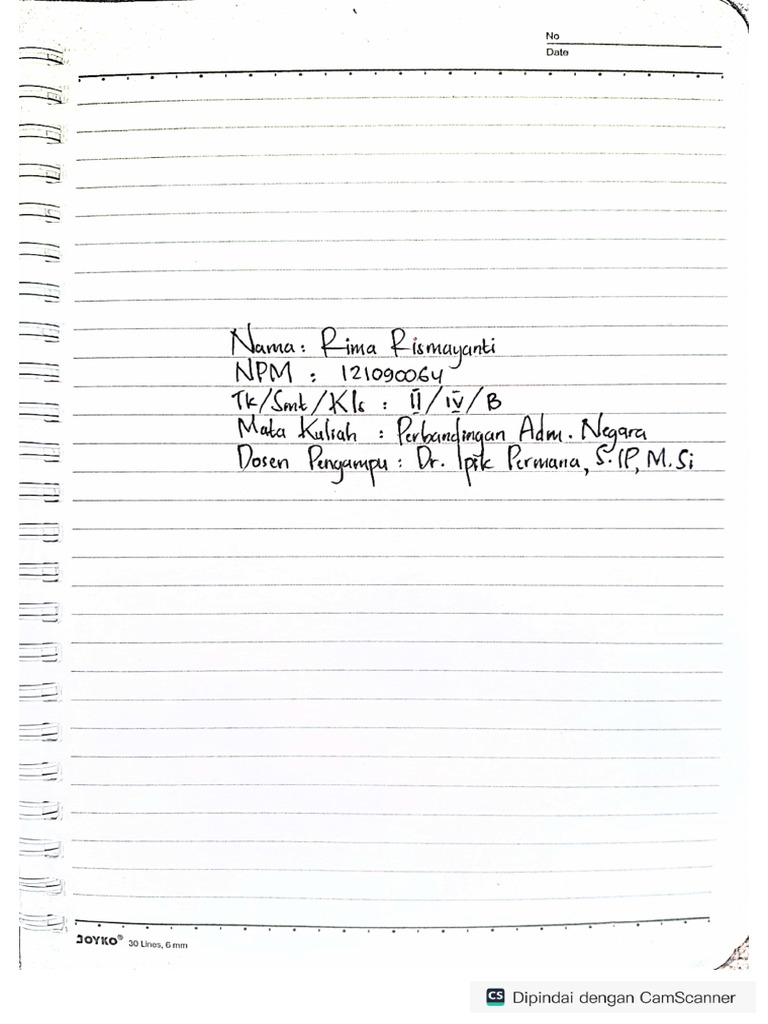 No
Date
Nama : Rima Rismayanti
NPM : 121090064
Tk/Smt/Kls : II/IV/B
Mata Kuliah : Perbandingan Adm. Negara
Dosen Pengampu : Dr. Ipik Permana, S.IP, M.Si
JOYKO® 30 Lines, 6 mm
CS Dipindai dengan CamScanner